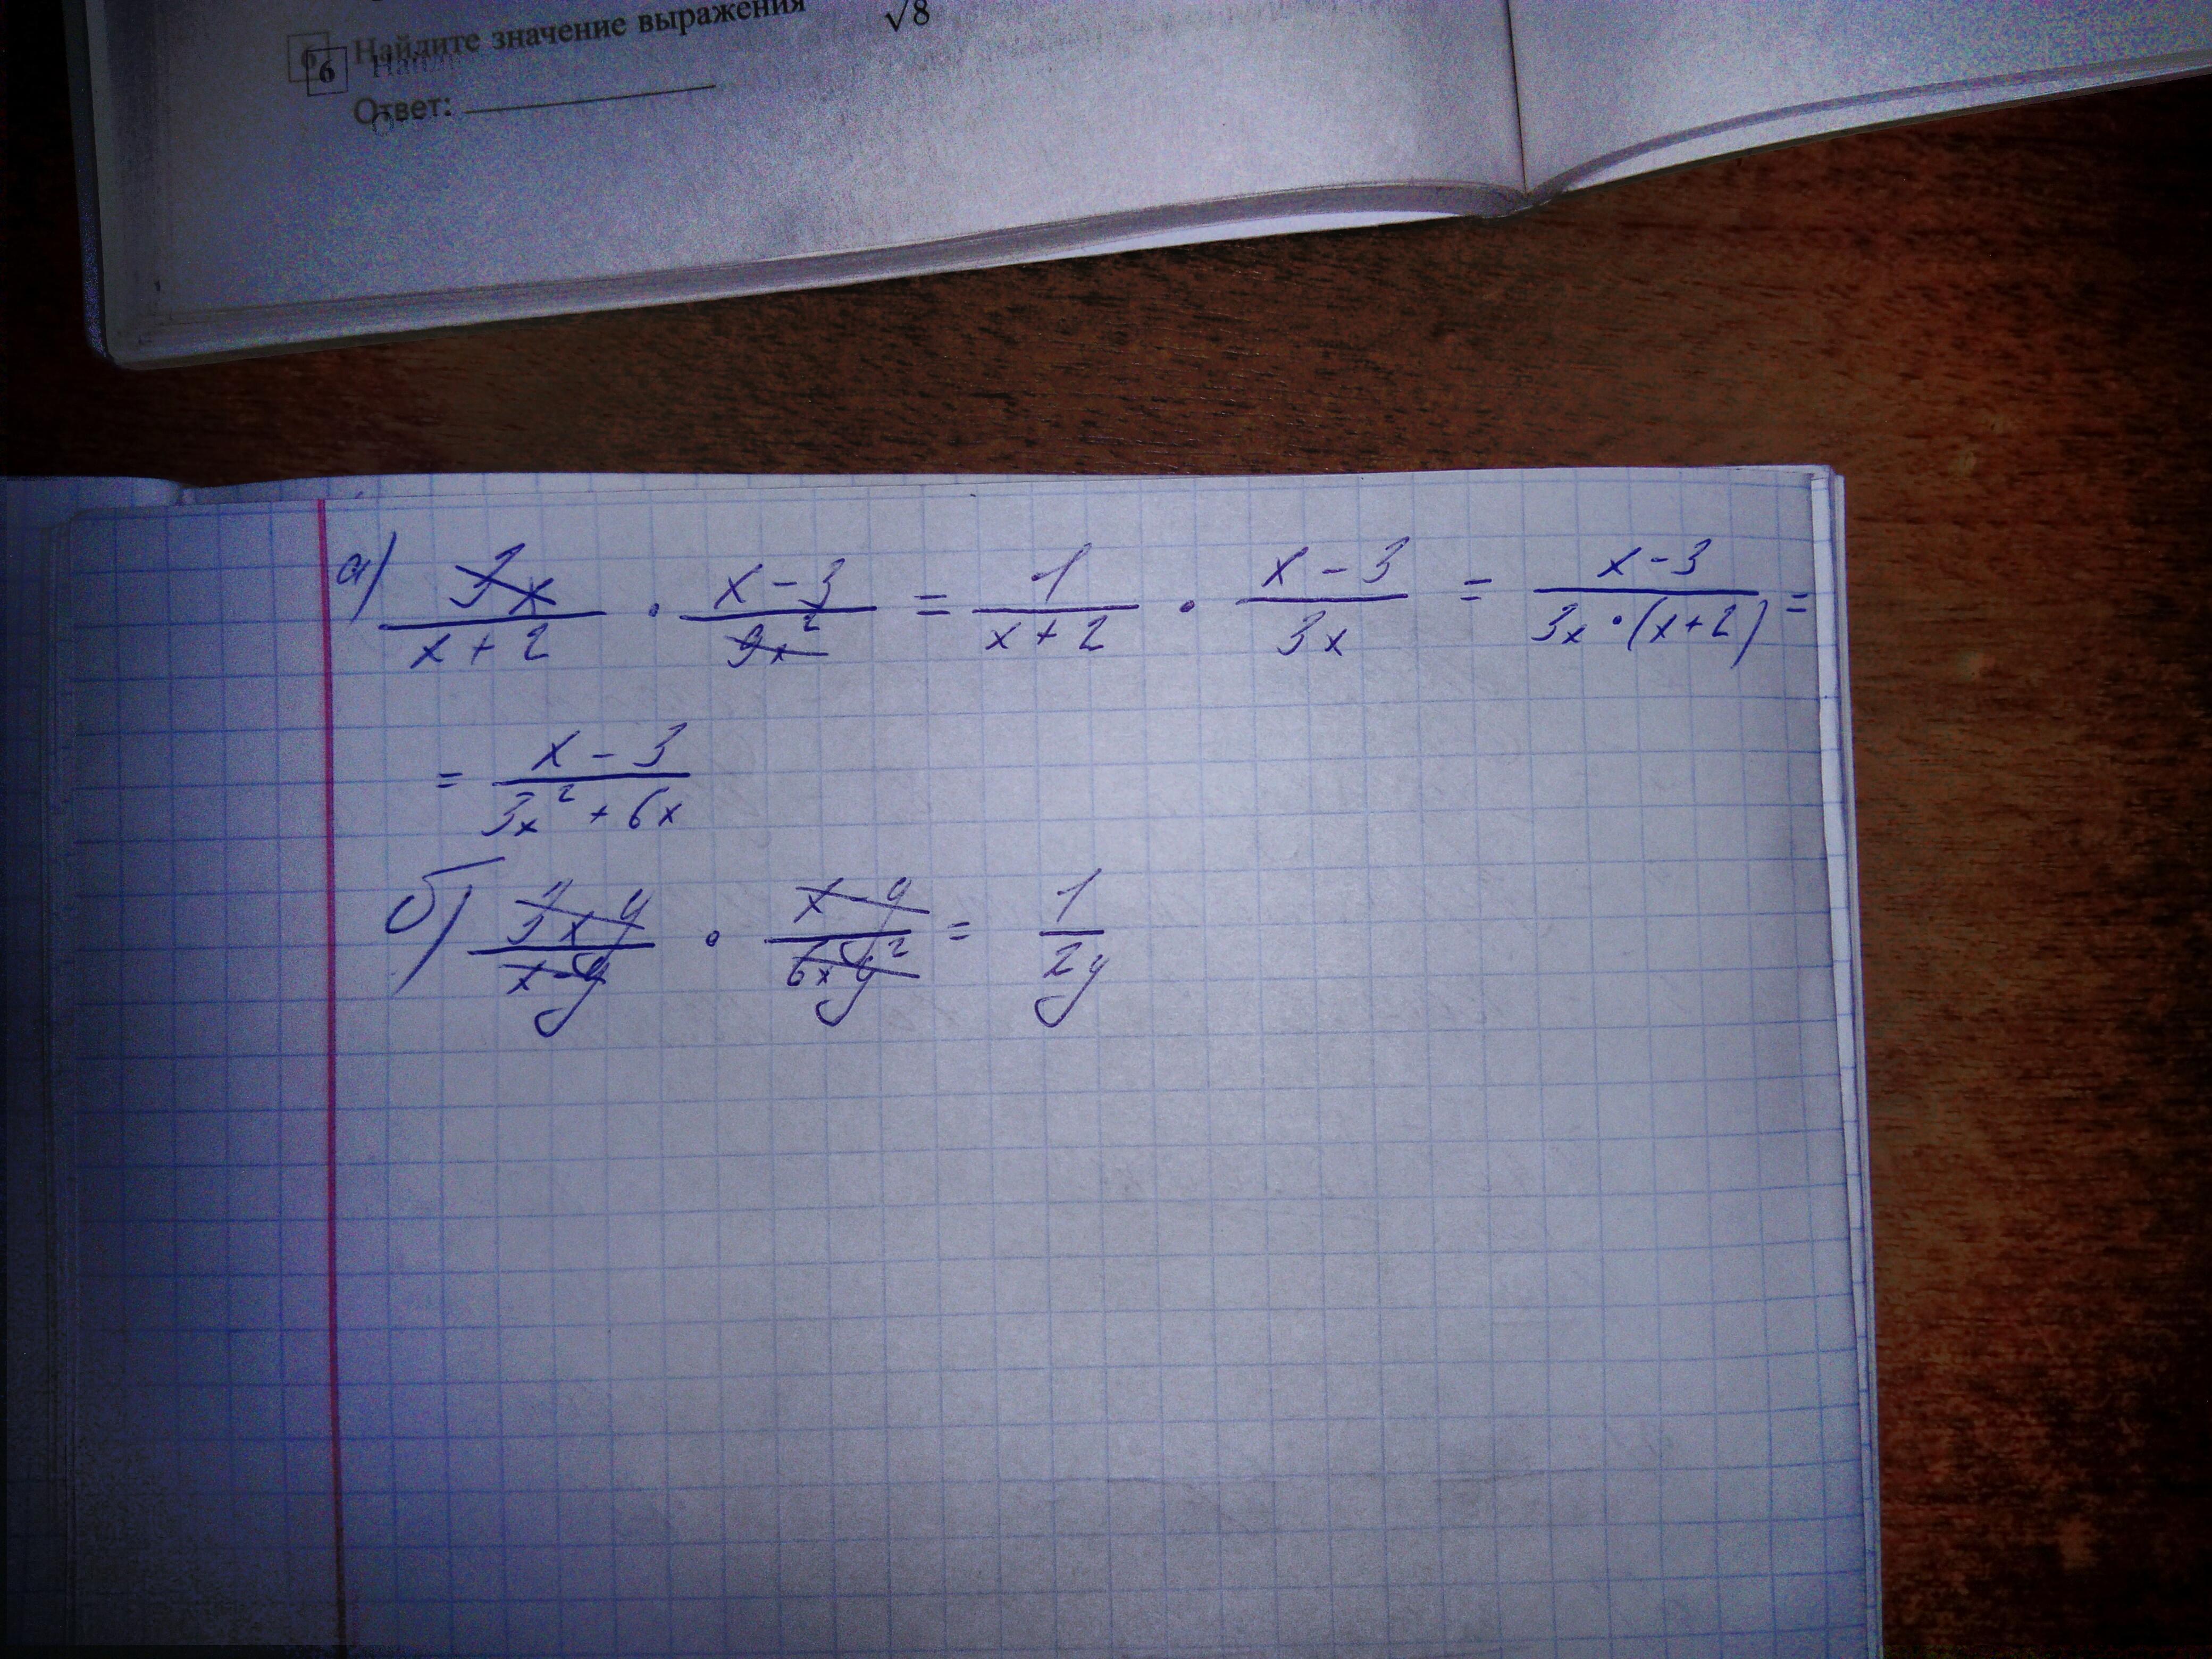 6 Найдите значение выражения √8
Ответ:
а) 3x/(x+2) · (x-3)/(9x²) = 1/(x+2) · (x-3)/(3x) = (x-3)/(3x·(x+2)) =
= (x-3)/(3x²+6x)
б) 3xy/(x-y) · (x-y)/(6xy²) = 1/(2y)